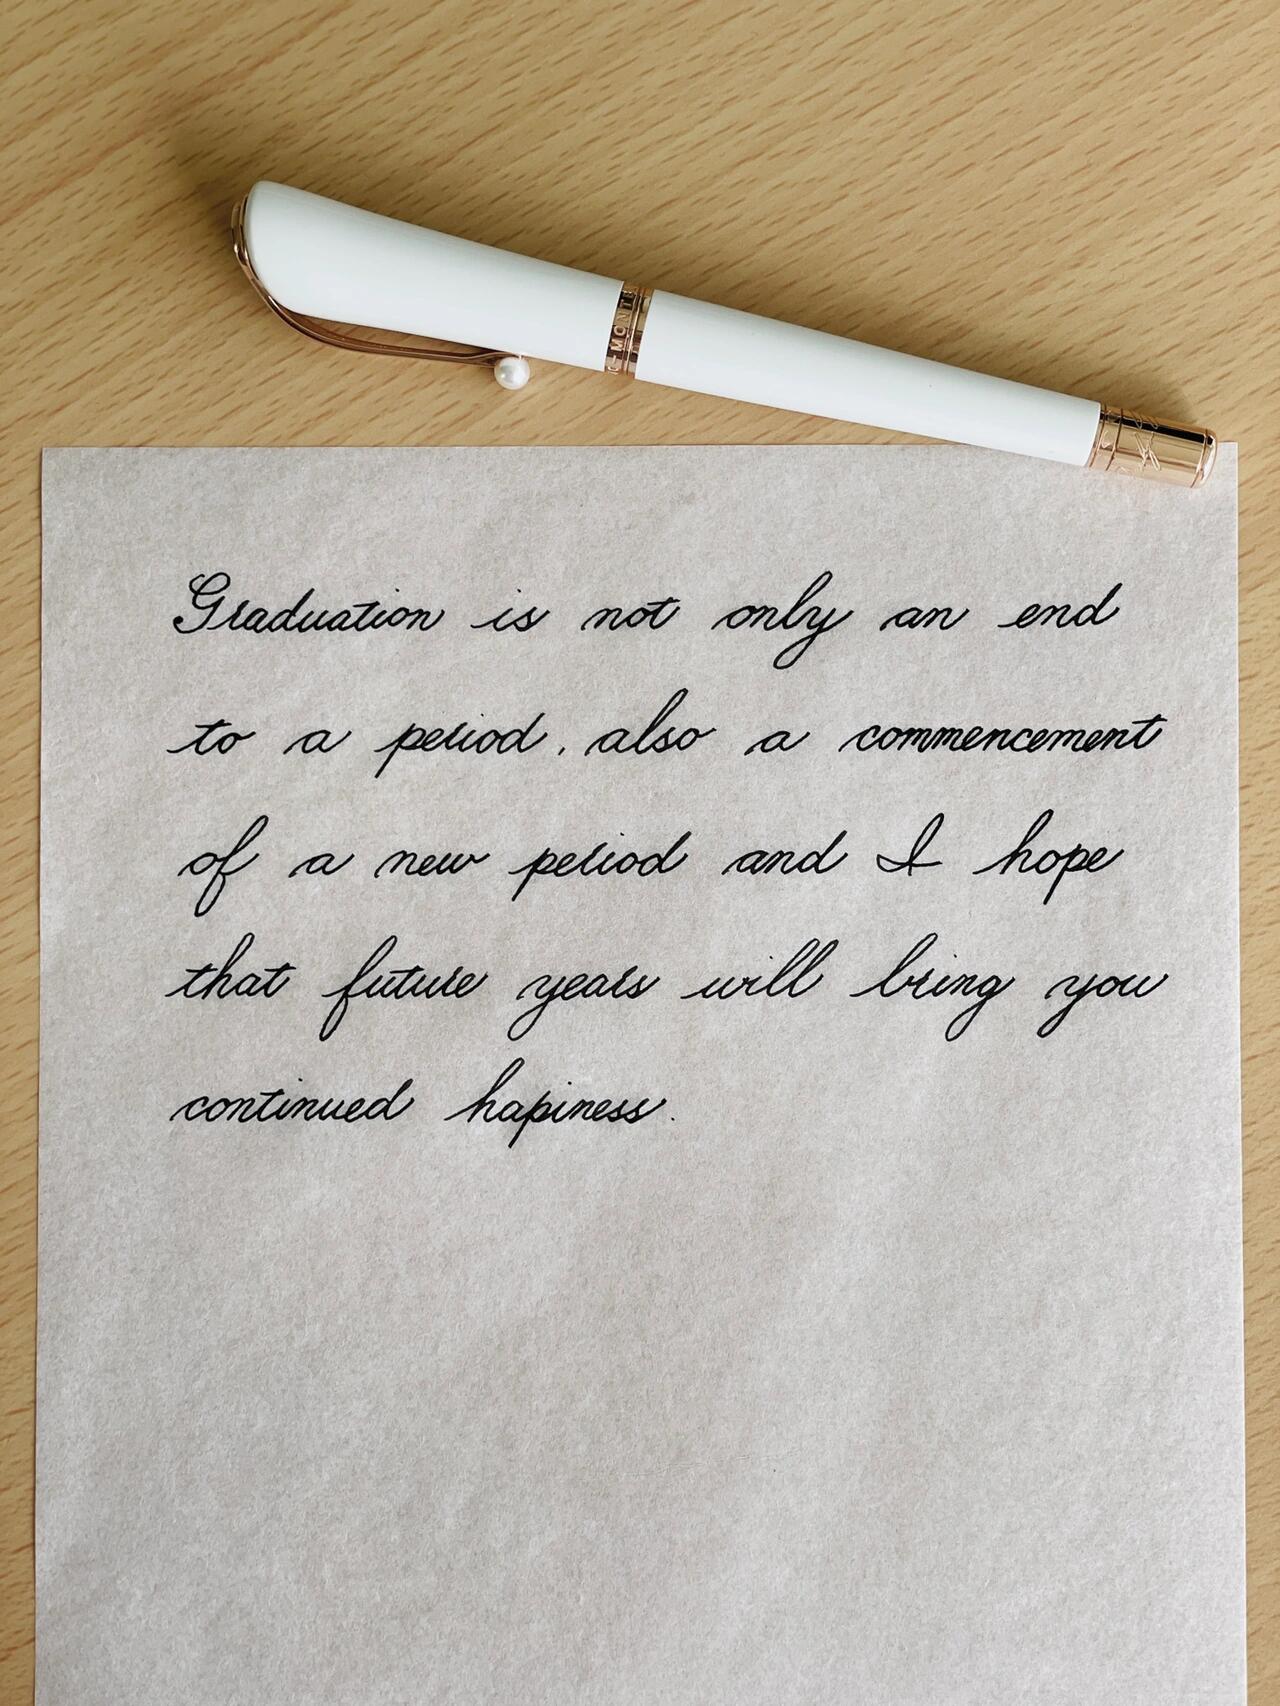 MONTB
Graduation is not only an end
to a period, also a commencement
of a new period and I hope
that future years will bring you
continued hapiness.